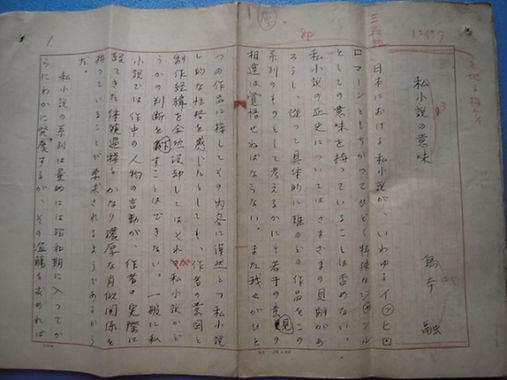 私小説の意味
島本 融
日本における私小説が、いわゆるイッヒロ
マーンとちがってひどく特殊なジャンル
としての意味を持っていることは否めない。
私小説の歴史についてはさまざまの見解があ
ろうし、従って具体的に誰のどの作品をこの
系列のものとして考えるかにも若干の意見
相違は覚悟せねばならない。また我々がひと
つの作品に接してその内容に漠然とつ私小説
し的な性格を感じたとしても、作者の意図と
創作経緯を全然没却してはそれが私小説かど
うかの判断を下すことはできない。一般に私
小説では作中の人物の言動が、作者の実際に
経てきた体験過程とかなり濃厚な自似関係を
持っていることが要求されるようであるから
だ。
私小説の系列は量的には昭和期に入ってか
らにわかに発展するが、その源を求めれば